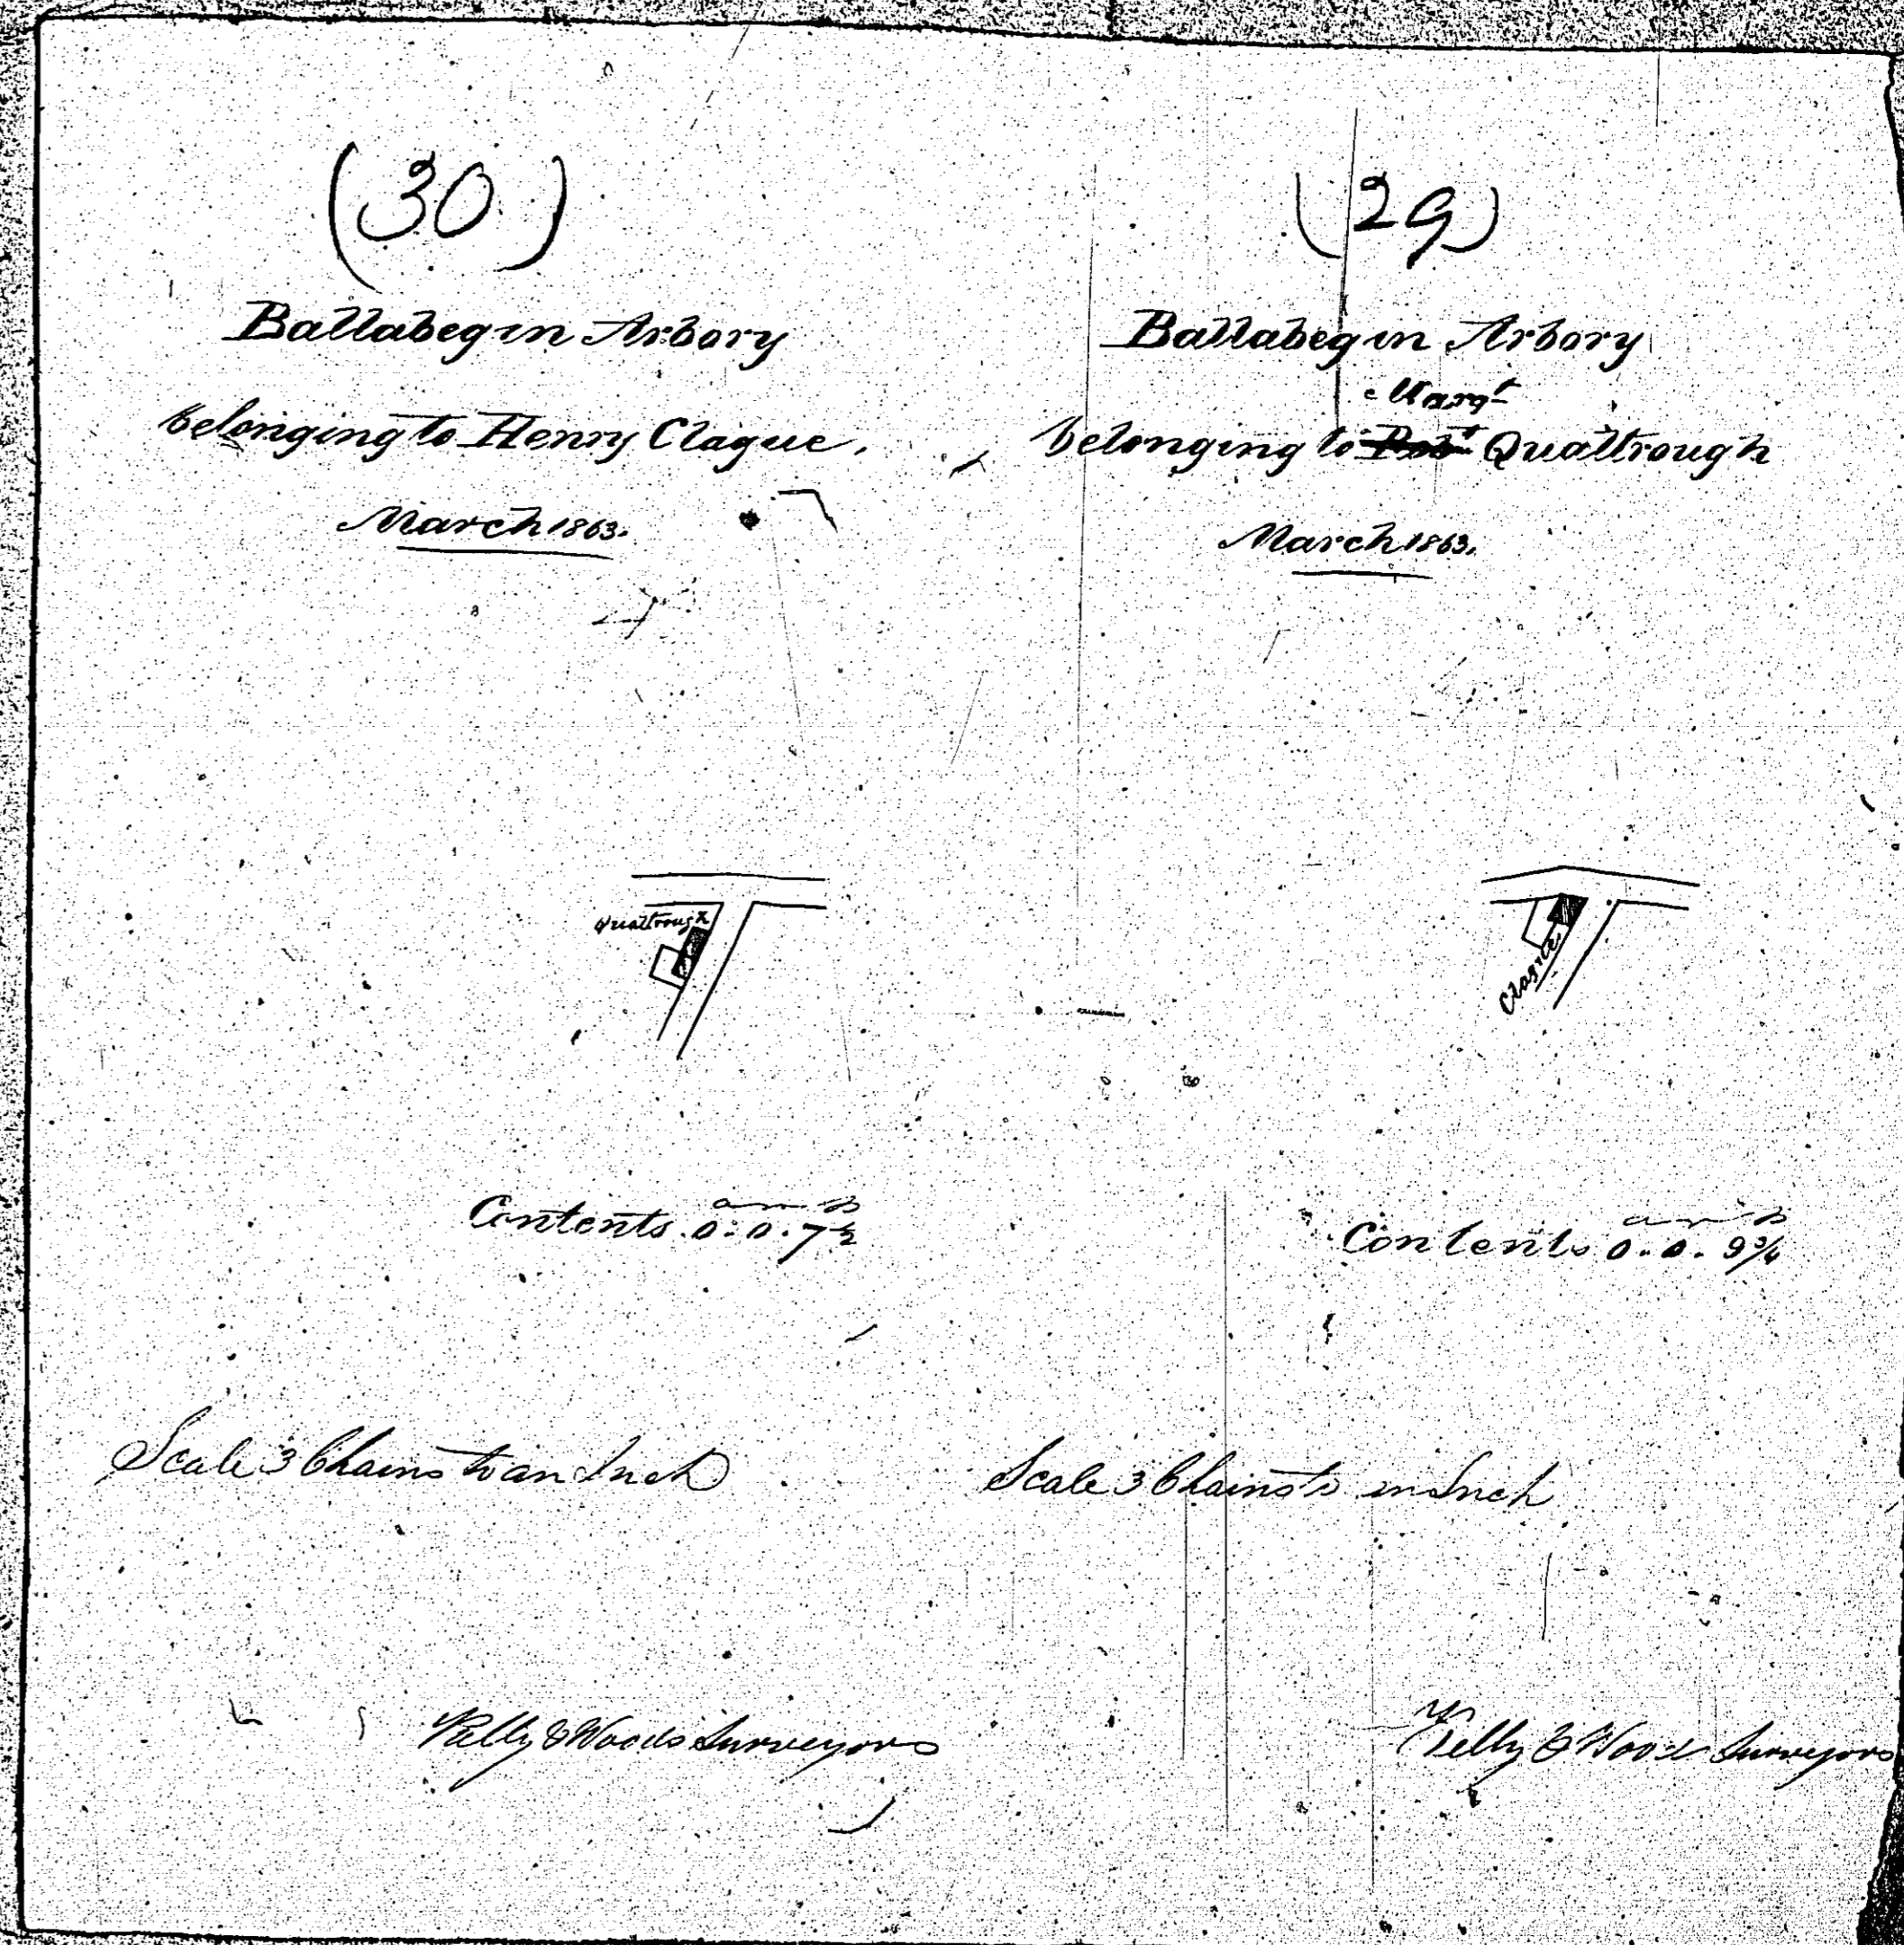 (30)
Ballabeg in Arbory
belonging to Henry Clague.
March 1863.
Quattrough
Contents a r p
0.. 0. 7½
Scale 3 Chains to an Inch
& Woods Surveyors
(29)
Ballabeg in Arbory
Margt
belonging to Robt Qualtrough
March 1863.
Clague
Contents a r p
0.. 0. 9¾
Scale 3 Chains to an Inch
& Woods Surveyors